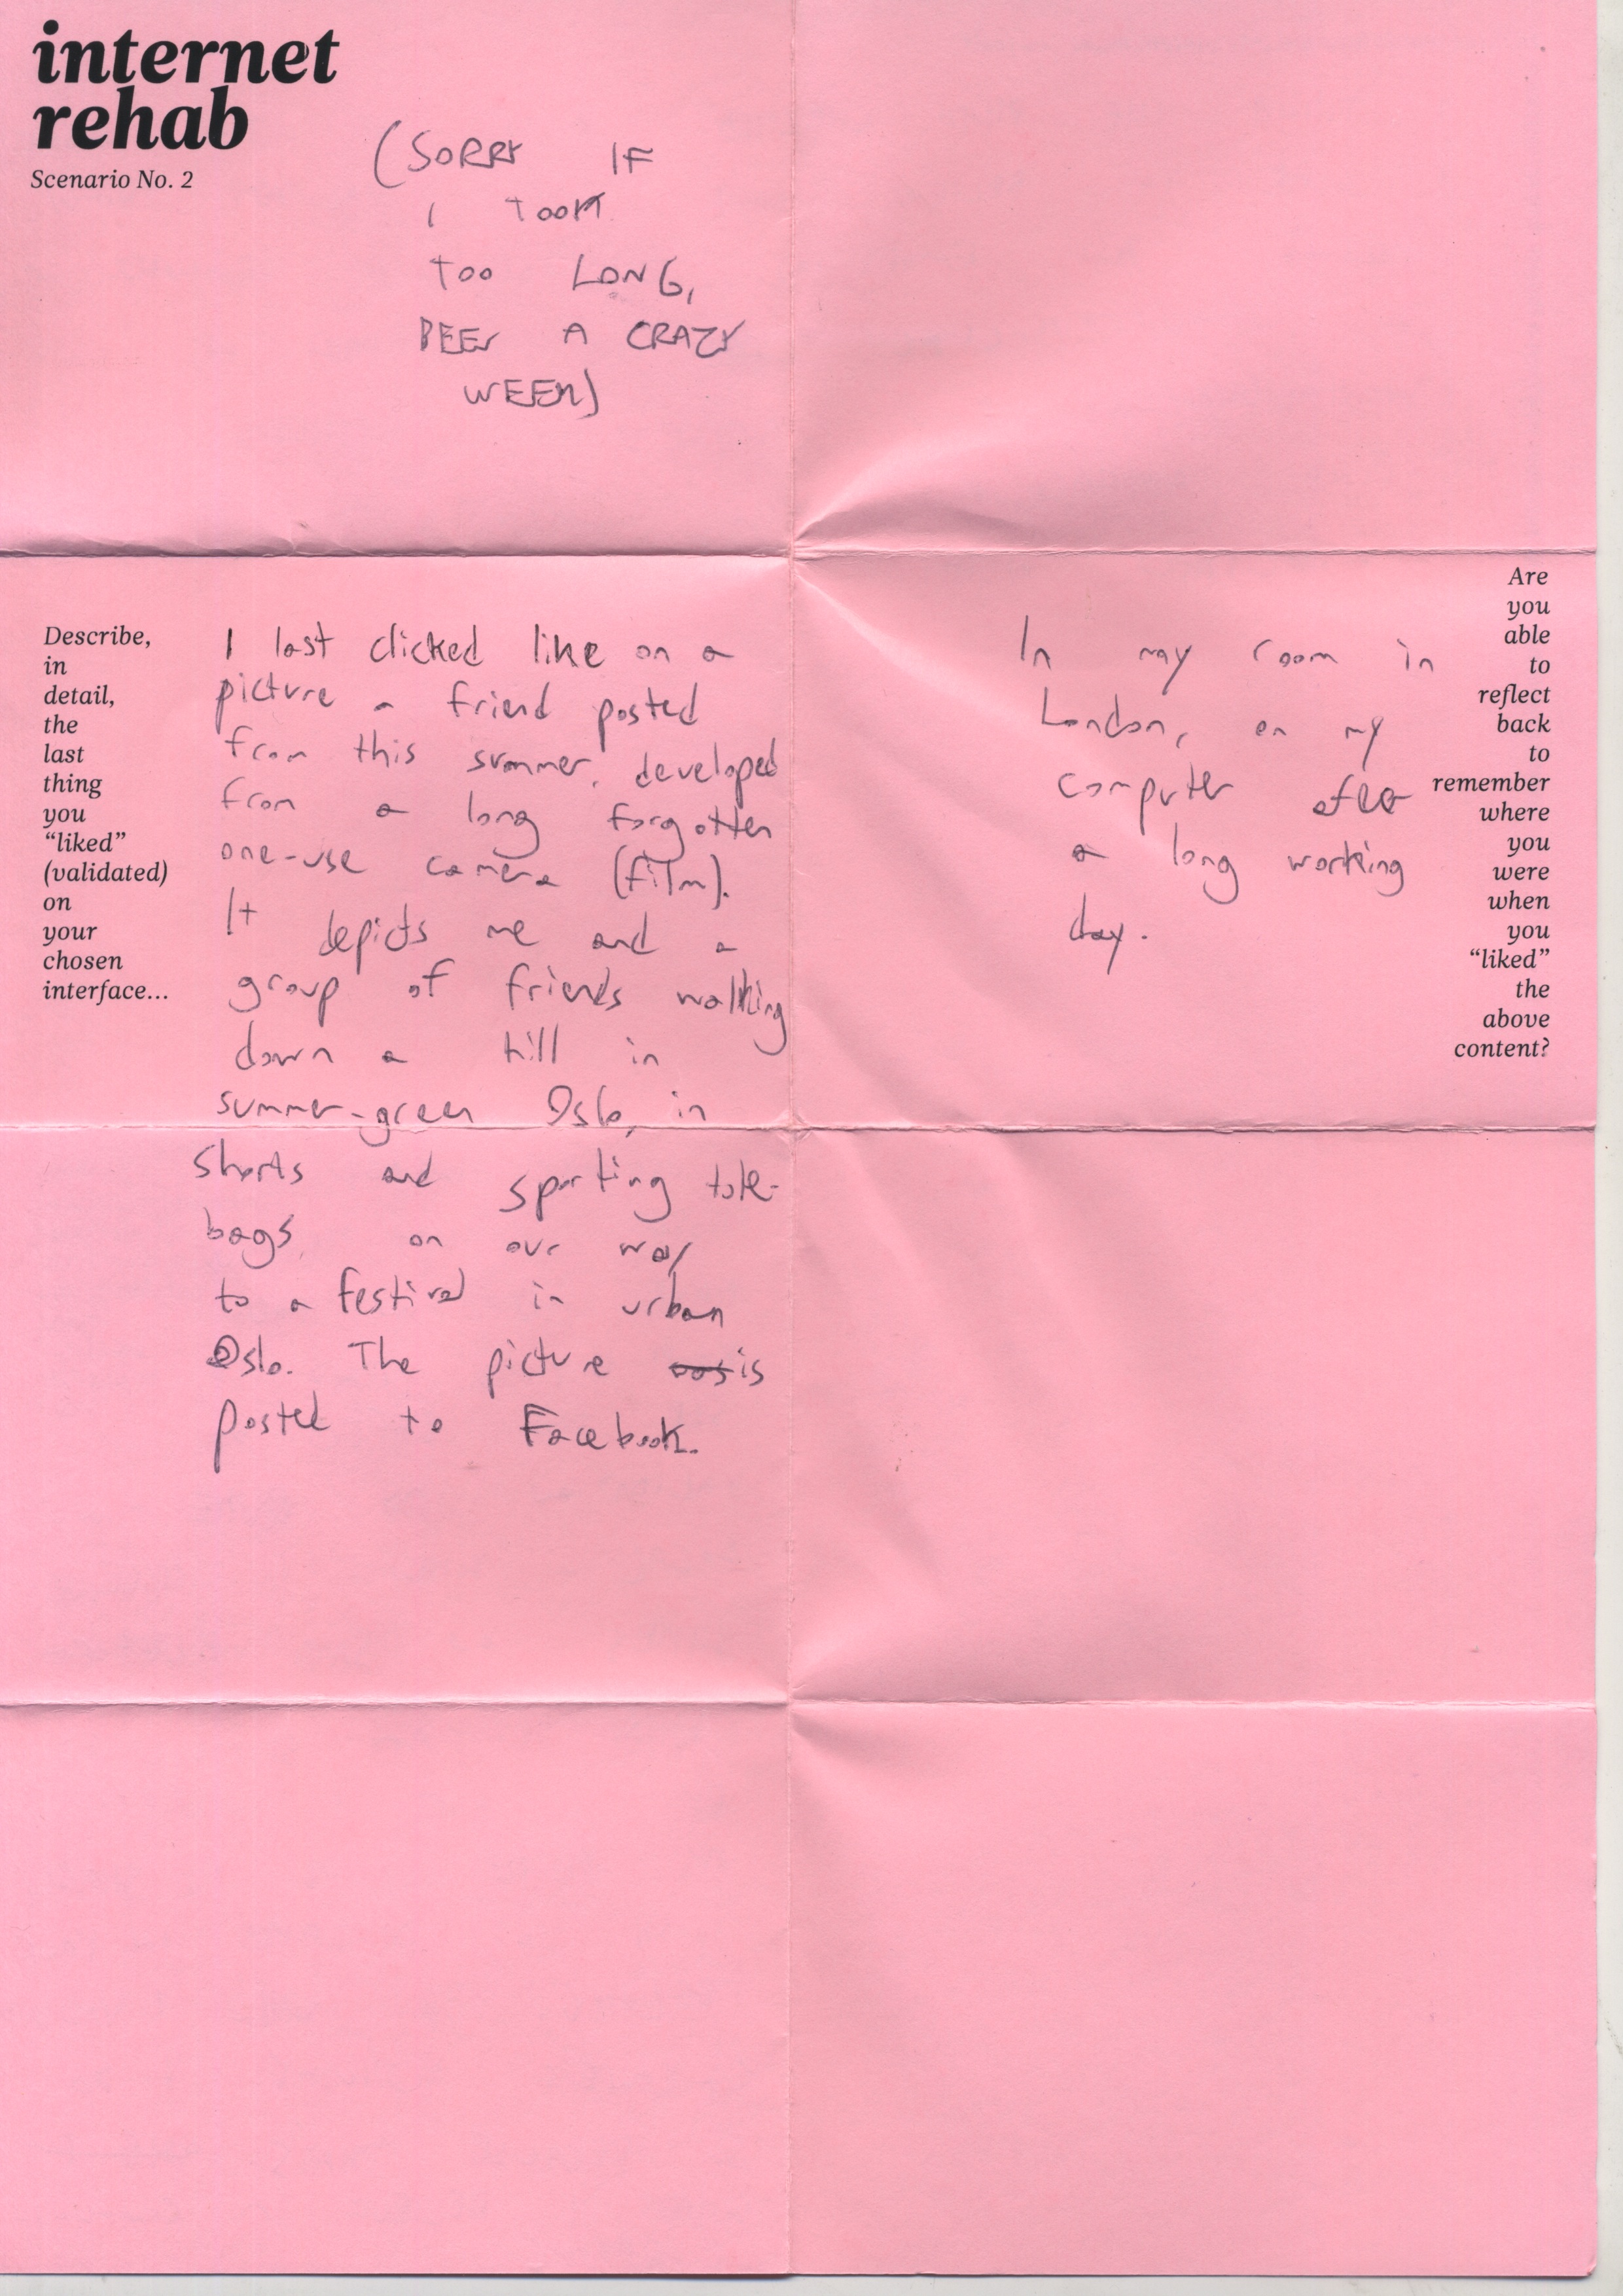 internet
rehab
Scenario No. 2
(SORRY IF
I TOOK
TOO LONG,
BEEN A CRAZY
WEEK)
Describe,
in
detail,
the
last
thing
you
“liked”
(validated)
on
your
chosen
interface...
I last clicked like on a
picture a friend posted
from this summer, developed
from a long forgotten
one-use camera (film).
It depicts me and a
group of friends walking
down a hill in
summer-green Oslo, in
shorts and sporting tote-
bags, on our way
to a festival in urban
Oslo. The picture was is
posted to Facebook.
Are
you
able
to
reflect
back
to
remember
where
you
were
when
you
“liked”
the
above
content?
In my room in
London, on my
computer after
a long working
day.